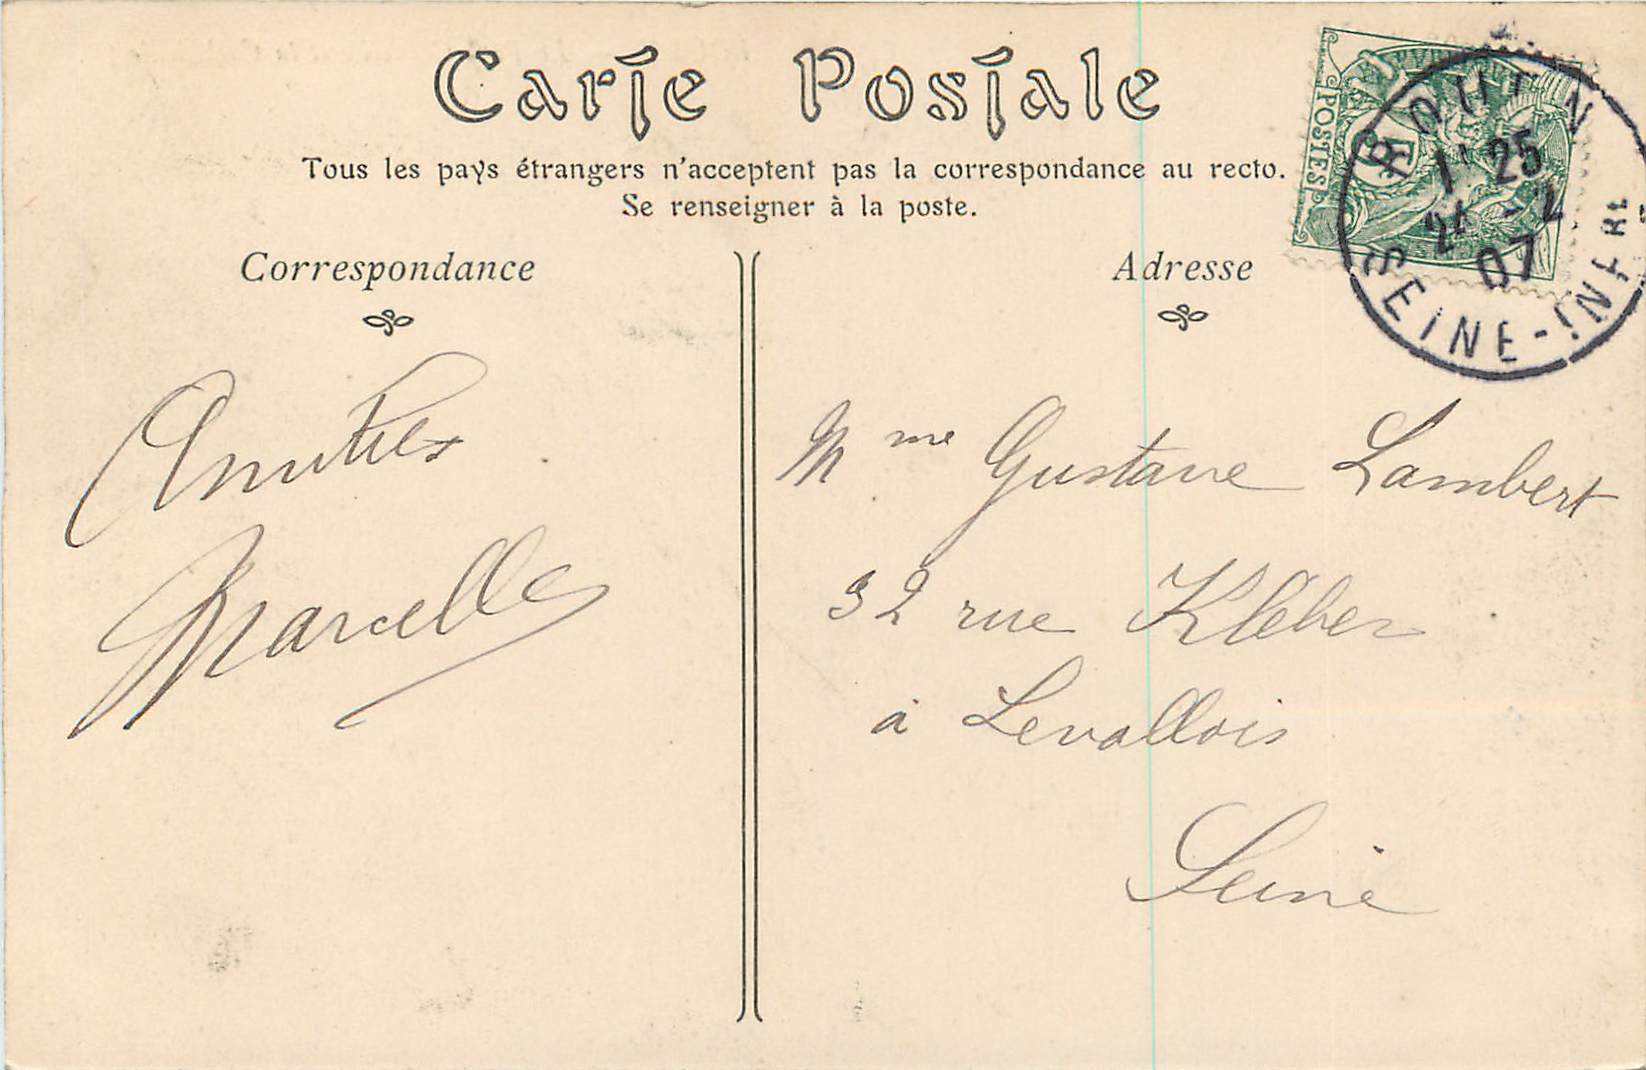 Carte Postale
Tous les pays étrangers n'acceptent pas la correspondance au recto.
Se renseigner à la poste.
Correspondance
Adresse
POSTES
ROUEN
1 25
24 -
07
SEINE-INFRE
Amitiés
Marcelle
Mme Gustave Lambert
32 rue Kléber
à Levallois
Seine